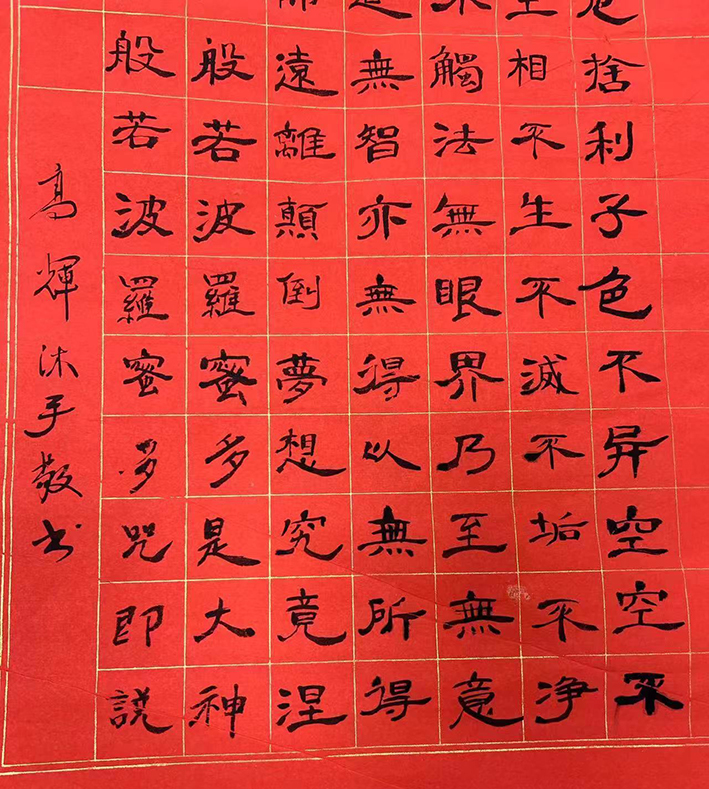 捨利子色不异空空不
相不生不滅不垢不净
觸法無眼界乃至無意
無智亦無得以無所得
遠離顛倒夢想究竟涅
般若波羅蜜多是大神
般若波羅蜜多咒即説
高輝沐手敬书